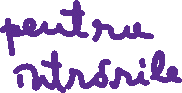 pentru
intrările